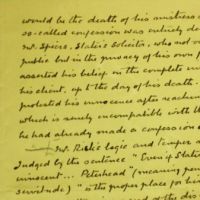 would be the death of his mistress a
so-called confession was entirely de
Mr. Speirs, Slater's Solicitor, who not o
public but in the privacy of his own f
asserted his belief in the complete inn
his client. up to the day of his death.
protested his innocence after reachin
which is surely incompatible with th
he had already made a confession o
Mr. Risk's logic and temper a
Judged by the sentence "Even if Slate
innocent... Peterhead" (meaning pen
servitude) "is the proper place for hi